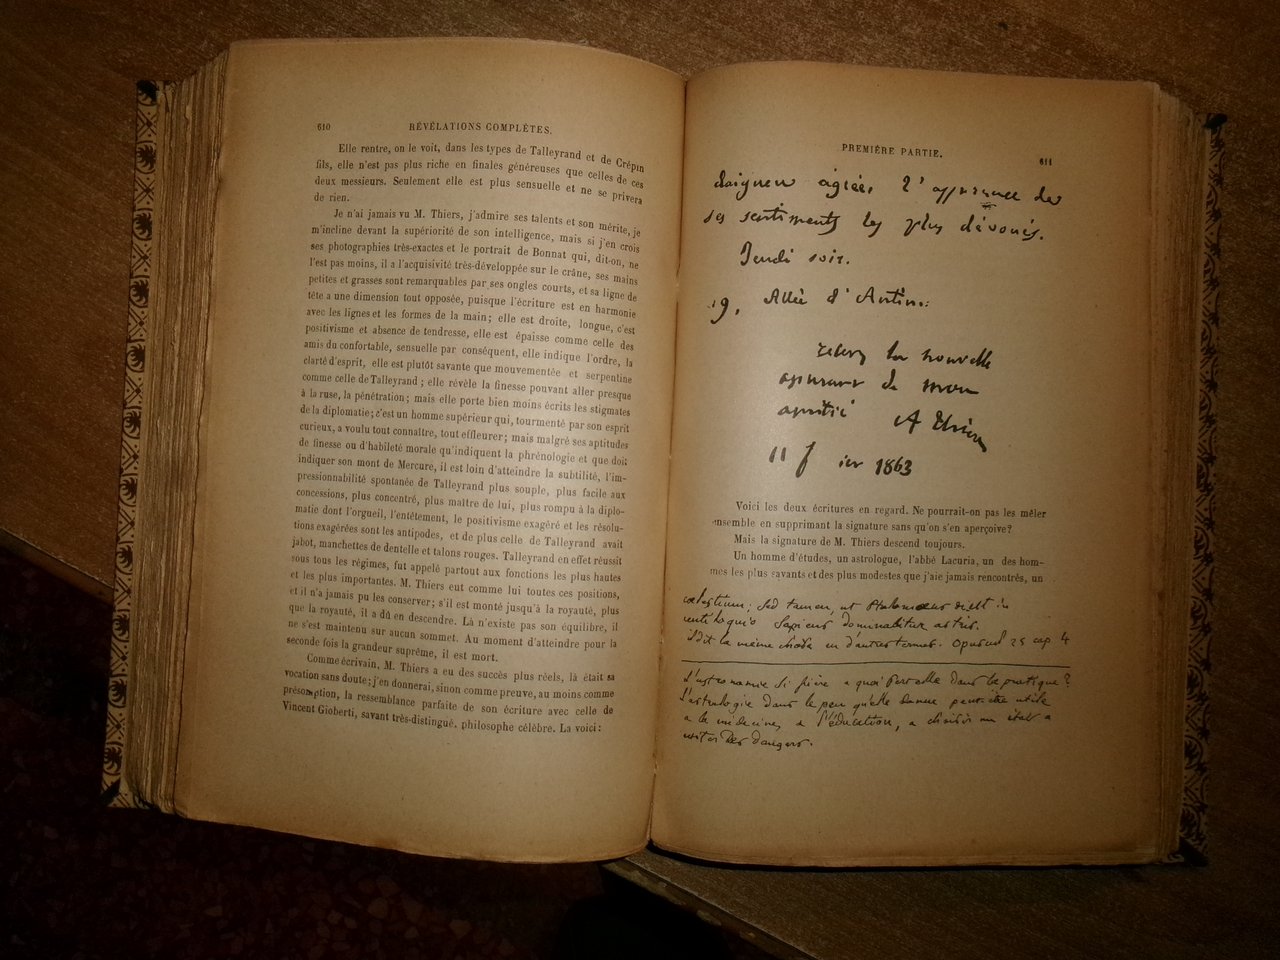 610
RÉVÉLATIONS COMPLÈTES.
Elle rentre, on le voit, dans les types de Talleyrand et de Crépin
fils, elle n'est pas plus riche en finales généreuses que celles de ces
deux messieurs. Seulement elle est plus sensuelle et ne se privera
de rien.
Je n'ai jamais vu M. Thiers, j'admire ses talents et son mérite, je
m'incline devant la supériorité de son intelligence, mais si j'en crois
ses photographies très-exactes et le portrait de Bonnat qui, dit-on, ne
l'est pas moins, il a l'acquisivité très-développée sur le crâne, ses mains
petites et grasses sont remarquables par ses ongles courts, et sa ligne de
tête a une dimension tout opposée, puisque l'écriture est en harmonie
avec les lignes et les formes de la main; elle est droite, longue, c'est
positivisme et absence de tendresse, elle est épaisse comme celle des
amis du confortable, sensuelle par conséquent, elle indique l'ordre, la
clarté d'esprit, elle est plutôt savante que mouvementée et serpentine
comme celle de Talleyrand; elle révèle la finesse pouvant aller presque
à la ruse, la pénétration; mais elle porte bien moins écrits les stigmates
de la diplomatie; c'est un homme supérieur qui, tourmenté par son esprit
curieux, a voulu tout connaître, tout effleurer; mais malgré ses aptitudes
de finesse ou d'habileté morale qu'indiquent la phrénologie et que doit
indiquer son mont de Mercure, il est loin d'atteindre la subtilité, l'im-
pressionnabilité spontanée de Talleyrand plus souple, plus facile aux
concessions, plus concentré, plus maître de lui, plus rompu à la diplo-
matie dont l'orgueil, l'entêtement, le positivisme exagéré et les résolu-
tions exagérées sont les antipodes, et de plus celle de Talleyrand avait
jabot, manchettes de dentelle et talons rouges. Talleyrand en effet réussit
sous tous les régimes, fut appelé partout aux fonctions les plus hautes
et les plus importantes. M. Thiers eut comme lui toutes ces positions,
et il n'a jamais pu les conserver; s'il est monté jusqu'à la royauté, plus
que la royauté, il a dû en descendre. Là n'existe pas son équilibre, il
ne s'est maintenu sur aucun sommet. Au moment d'atteindre pour la
seconde fois la grandeur suprême, il est mort.
Comme écrivain, M. Thiers a eu des succès plus réels, là était sa
vocation sans doute; j'en donnerai, sinon comme preuve, au moins comme
présomption, la ressemblance parfaite de son écriture avec celle de
Vincent Gioberti, savant très-distingué, philosophe célèbre. La voici:
PREMIÈRE PARTIE.
611
daigner agréer l'assurance de
ses sentiments les plus dévoués.
Jeudi soir.
19, Allée d'Antin.
la nouvelle
assurance de mon
amitié A Thiers
11 f ier 1863
Voici les deux écritures en regard. Ne pourrait-on pas les mêler
ensemble en supprimant la signature sans qu'on s'en aperçoive?
Mais la signature de M. Thiers descend toujours.
Un homme d'études, un astrologue, l'abbé Lacuria, un des hom-
mes les plus savants et des plus modestes que j'aie jamais rencontrés, un
coelestium; sed tamen, ut Ptolomoeus dicit in
centiloquio Sapiens dominabitur astris.
il dit la même chose en d'autres termes. Opuscul 25 cap 4
L'astronomie si fière a quoi sert elle dans la pratique?
L'astrologie dans le peu qu'elle donne peut être utile
a la médecine, a l'éducation, a choisir un état a
eviter des dangers.